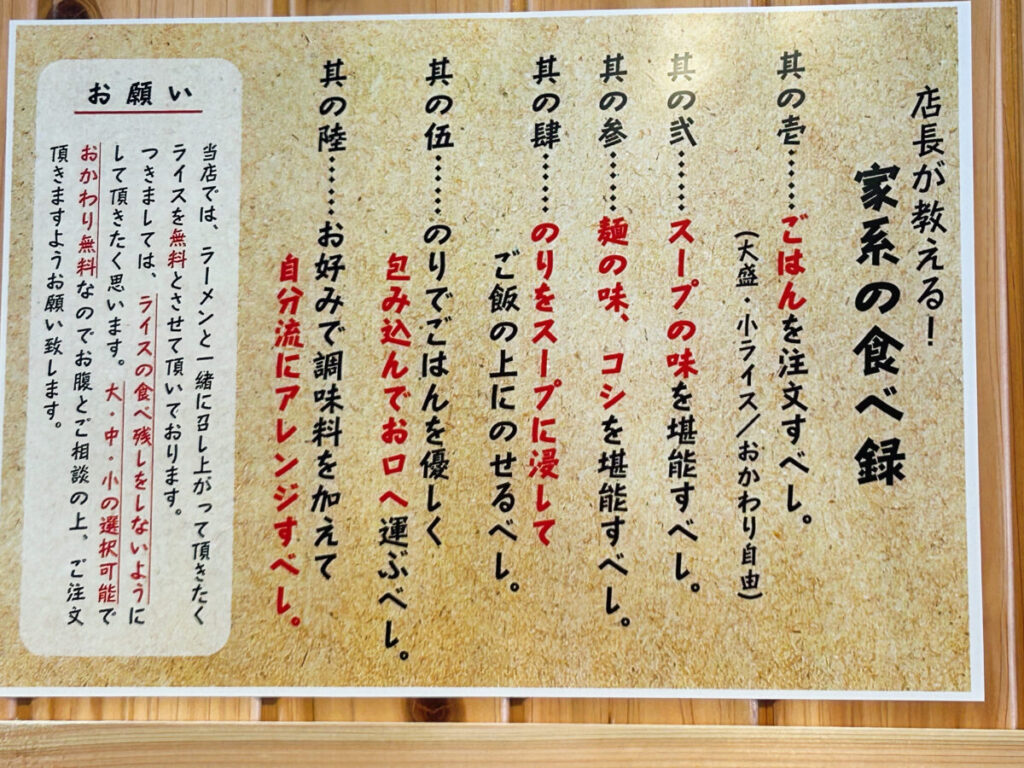 店長が教える！
家系の食べ録
其の壱……ごはんを注文すべし。
（大盛・小ライス／おかわり自由）
其の弐……スープの味を堪能すべし。
其の参……麺の味、コシを堪能すべし。
其の肆……のりをスープに浸して
ご飯の上にのせるべし。
其の伍……のりでごはんを優しく
包み込んでお口へ運ぶべし。
其の陸……お好みで調味料を加えて
自分流にアレンジすべし。
お願い
当店では、ラーメンと一緒に召し上がって頂きたく
ライスを無料とさせて頂いております。
つきましては、ライスの食べ残しをしないように
して頂きたく思います。大・中・小の選択可能で
おかわり無料なのでお腹とご相談の上、ご注文
頂きますようお願い致します。